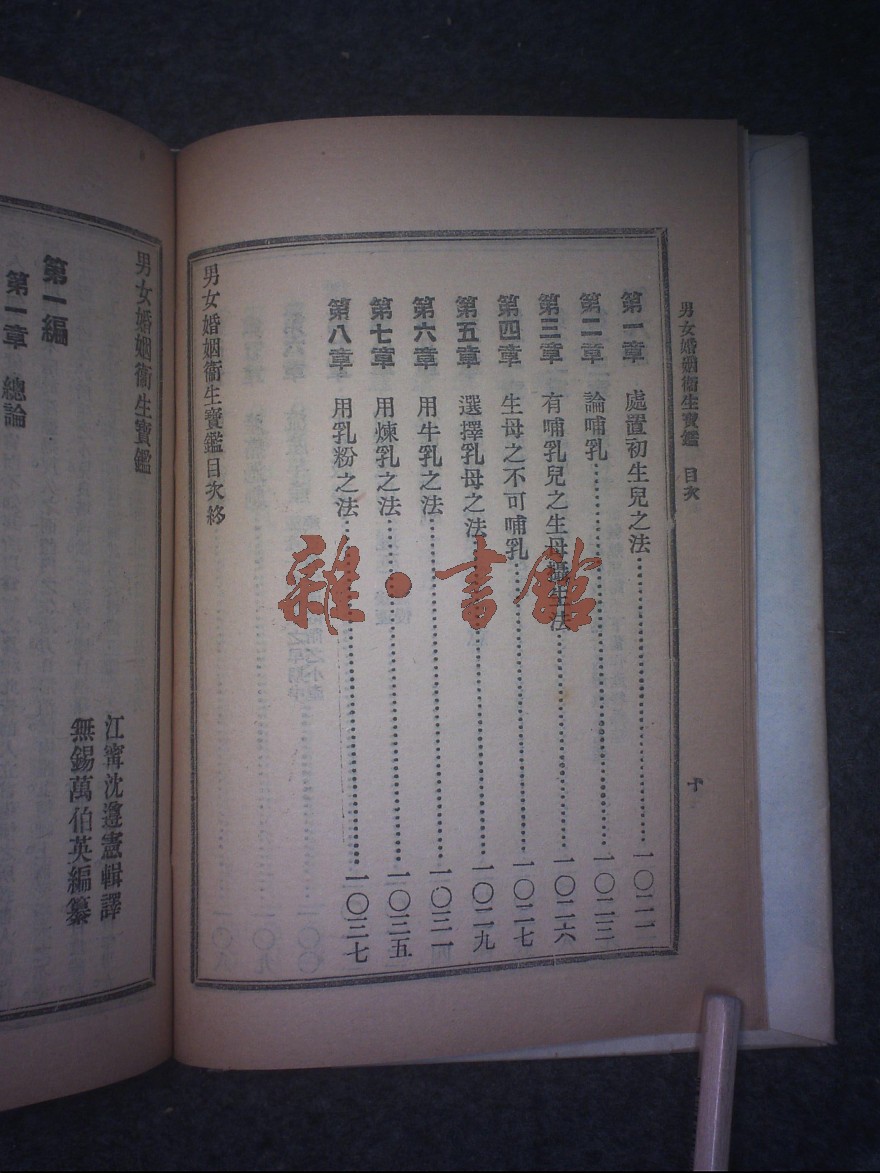 男女婚姻衞生寶鑑 目次
十
第一章 處置初生兒之法 一〇二一
第二章 論哺乳 一〇二三
第三章 有哺乳兒之生母攝生法 一〇二六
第四章 生母之不可哺乳 一〇二七
第五章 選擇乳母之法 一〇二九
第六章 用牛乳之法 一〇三一
第七章 用煉乳之法 一〇三五
第八章 用乳粉之法 一〇三七
男女婚姻衞生寶鑑目次終
男女婚姻衞生寶鑑
江寗沈遵憲輯譯
無錫萬伯英編纂
第一編
第一章 總論
雜·書館